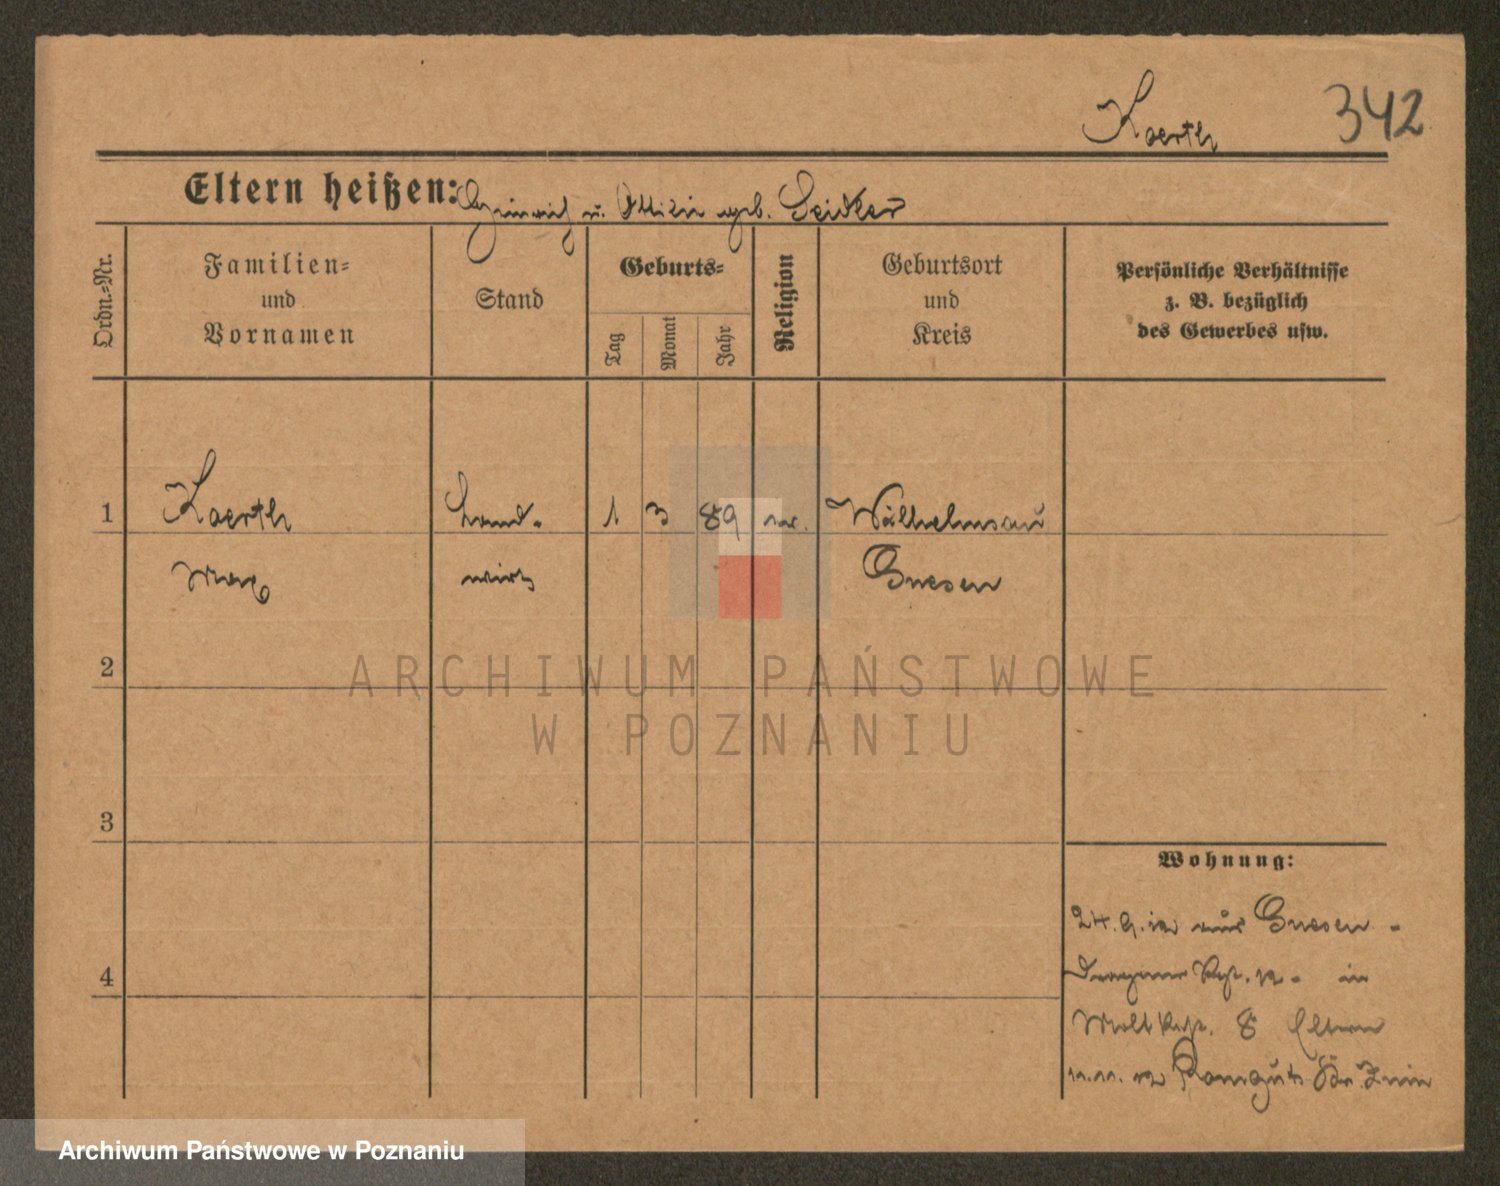 Koerth 342
Eltern heißen: Heinrich u. Ottilie geb. Seidler
Ordn.-Nr.
Familien-
und
Vornamen
Stand
Geburts-
Tag
Monat
Jahr
Religion
Geburtsort
und
Kreis
Persönliche Verhältnisse
z. B. bezüglich
des Gewerbes usw.
1 Koerth Land- 1 3 89 Wilhelmsau
Max wirt Gnesen
2
ARCHIWUM PAŃSTWOWE
W POZNANIU
3
Wohnung:
24. 9. 12 aus Gnesen -
4
Dragoner Rgt. 12 - in
Moltkestr. 8 Eltern
11. 11. 12 Kr. Znin
Archiwum Państwowe w Poznaniu